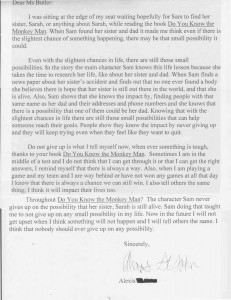 Dear Ms Butler:
I was sitting at the edge of my seat waiting hopefully for Sam to find her
sister, Sarah, or anything about Sarah, while reading the book Do You Know the
Monkey Man. When Sam found her sister and dad it made me think even if there is
the slightest chance of something happening, there may be that small possibility it
could.
Even with the slightest chances in life, there are still those small
possibilities. In the story the main character Sam knows this life lesson because she
takes the time to research her life, like about her sister and dad. When Sam finds a
news paper about her sister's accident and finds out that no one ever found a body
she believes there is hope that her sister is still out there in the world, and that she
is alive. Also, Sam shows that she knows the impact by, finding people with that
same name as her dad and their addresses and phone numbers and she knows that
there is a possibility that one of them could be her dad. Knowing that with the
slightest chances in life there are still those small possibilities that can help
someone reach their goals. People show they know the impact by never giving up
and they will keep trying even when they feel like they want to quit.
Do not give up is what I tell myself now, when ever something is tough,
thanks to your book Do You Know the Monkey Man. Sometimes I am in the
middle of a test and I do not think that I can get through it or that I can get the right
answers, I remind myself that there is always a way. Also, when I am playing a
game and my team and I are way behind or have not won any games at all that day
I know that there is always a chance we can still win. I also tell others the same
thing; I think it will impact their lives too.
Throughout Do You Know the Monkey Man? The character Sam never
gives up on the possibility that her sister, Sarah is still alive. Sam doing that taught
me to not give up on any small possibility in my life. Now in the future I will not
get upset when I think something will not happen and I will tell others the same. I
think that nobody should ever give up on any possibility.
Sincerely,
Alexis